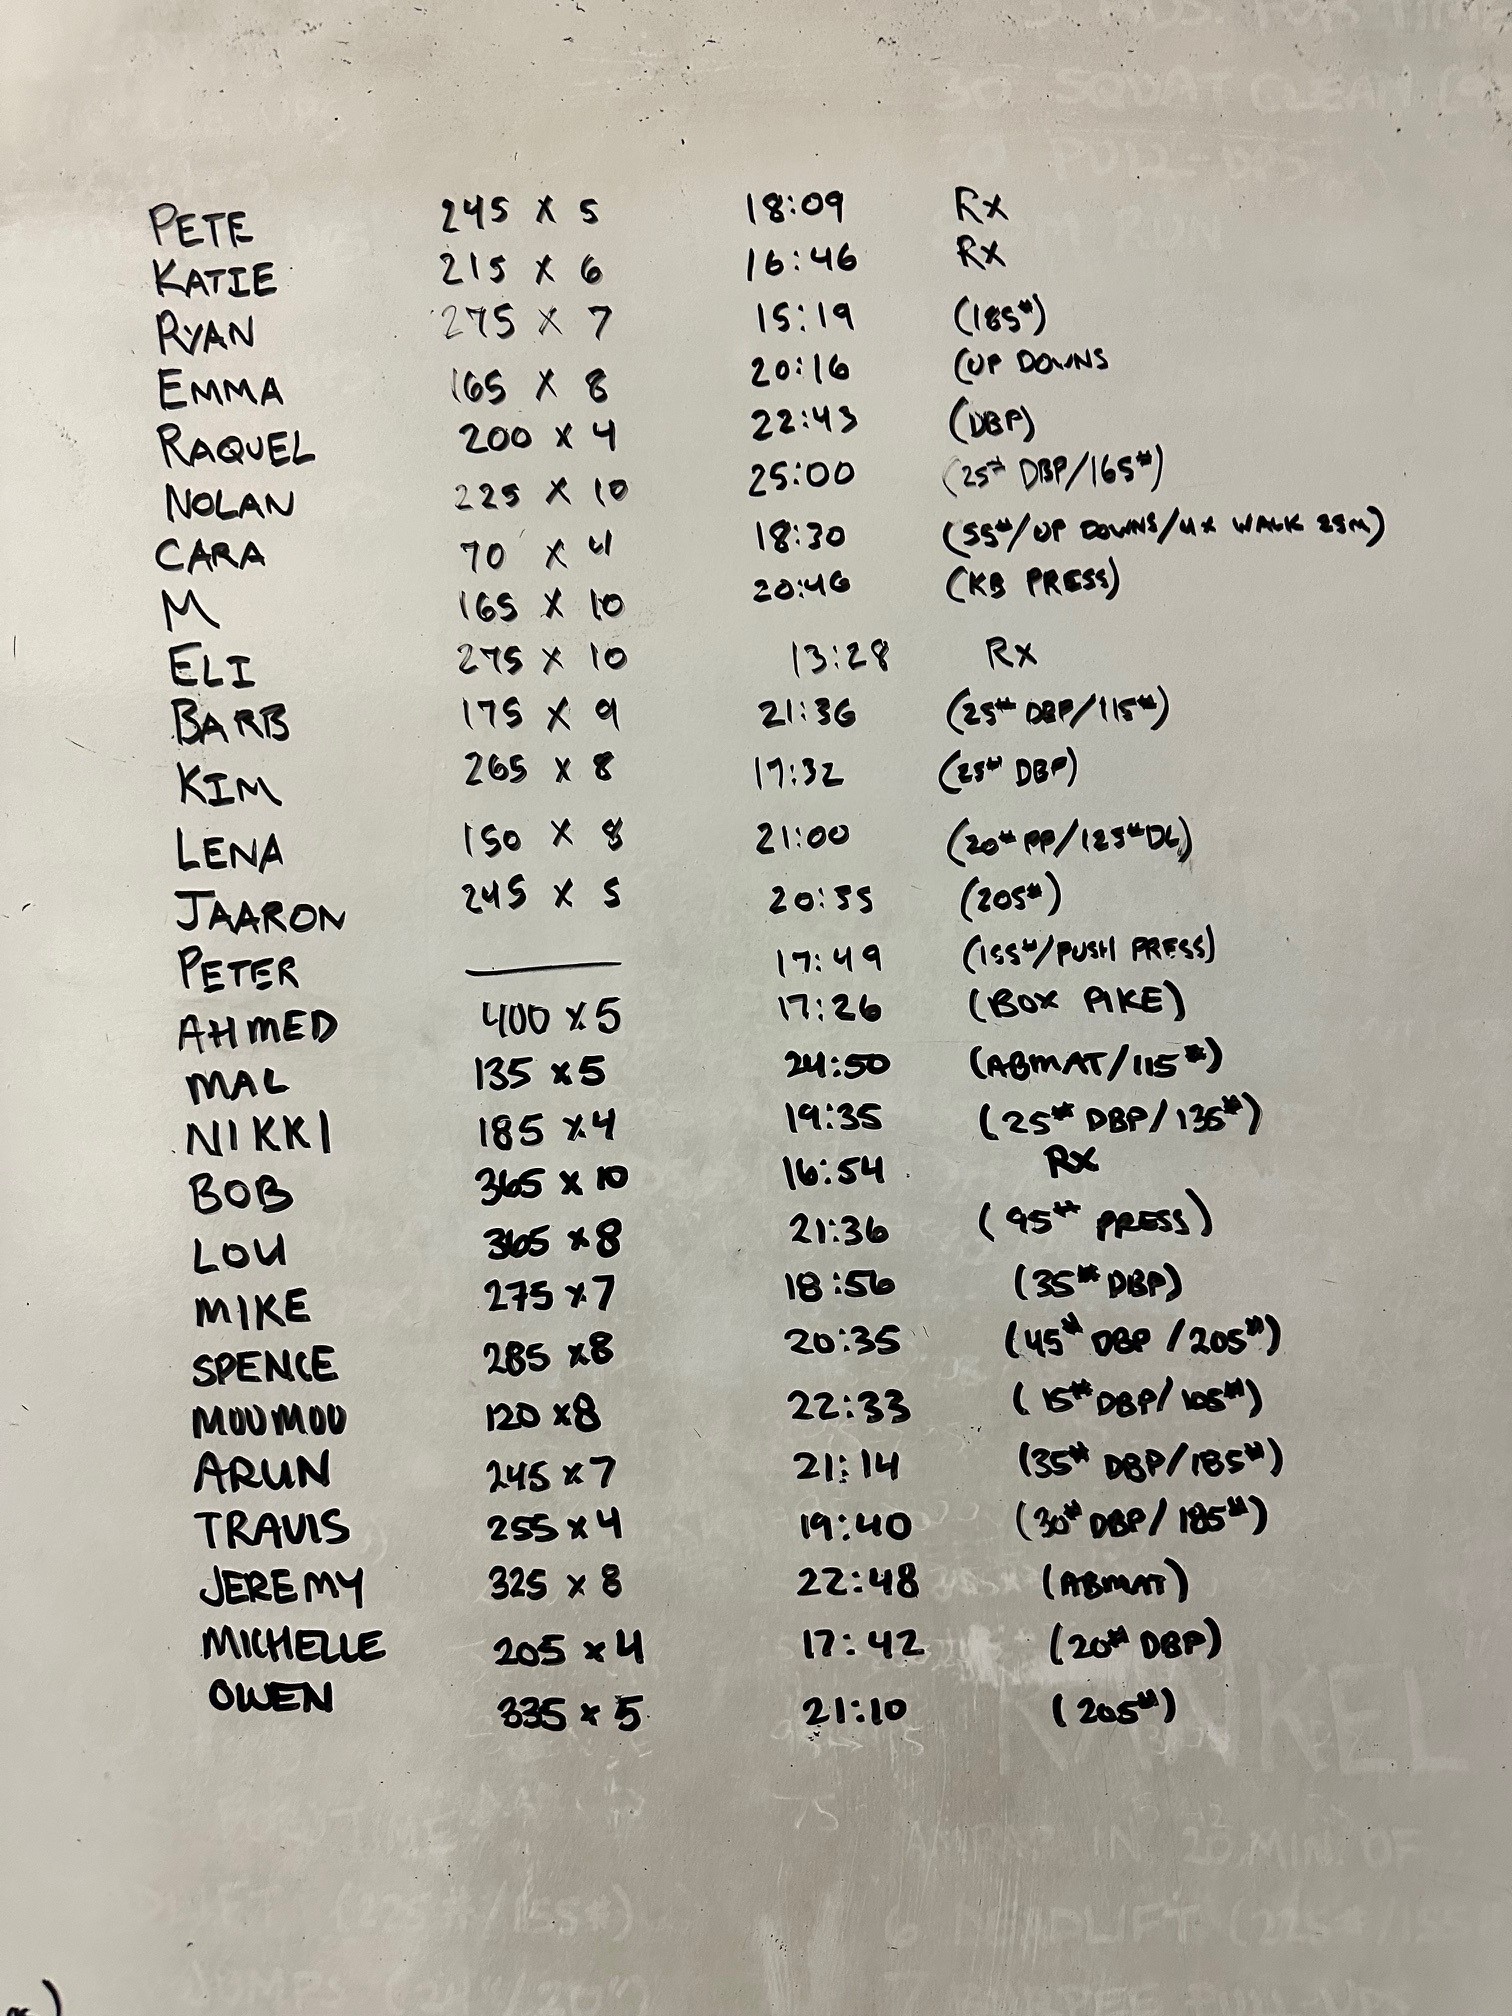 PETE 245 X 5 18:09 RX
KATIE 215 X 6 16:46 RX
RYAN 275 X 7 15:19 (185#)
EMMA 165 X 8 20:16 (UP DOWNS
RAQUEL 200 X 4 22:43 (DBP)
NOLAN 225 X 10 25:00 (25# DBP/165#)
CARA 70 X 4 18:30 (55#/UP DOWNS/4X WALK 25M)
M 165 X 10 20:46 (KB PRESS)
ELI 275 X 10 13:28 RX
BARB 175 X 9 21:36 (25# DBP/115#)
KIM 265 X 8 17:32 (25# DBP)
LENA 150 X 8 21:00 (20# PP/125# DL)
JAARON 245 X 5 20:35 (205#)
PETER — 17:49 (155#/PUSH PRESS)
AHMED 400 X 5 17:26 (BOX PIKE)
MAL 135 X 5 24:50 (ABMAT/115#)
NIKKI 185 X 4 19:35 (25# DBP/135#)
BOB 365 X 10 16:54 RX
LOU 365 X 8 21:36 (95# PRESS)
MIKE 275 X 7 18:56 (35# DBP)
SPENCE 285 X 8 20:35 (45# DBP/205#)
MOUMOU 120 X 8 22:33 (15# DBP/105#)
ARUN 245 X 7 21:14 (35# DBP/185#)
TRAVIS 255 X 4 19:40 (30# DBP/185#)
JEREMY 325 X 8 22:48 (ABMAT)
MICHELLE 205 X 4 17:42 (20# DBP)
OWEN 335 X 5 21:10 (205#)